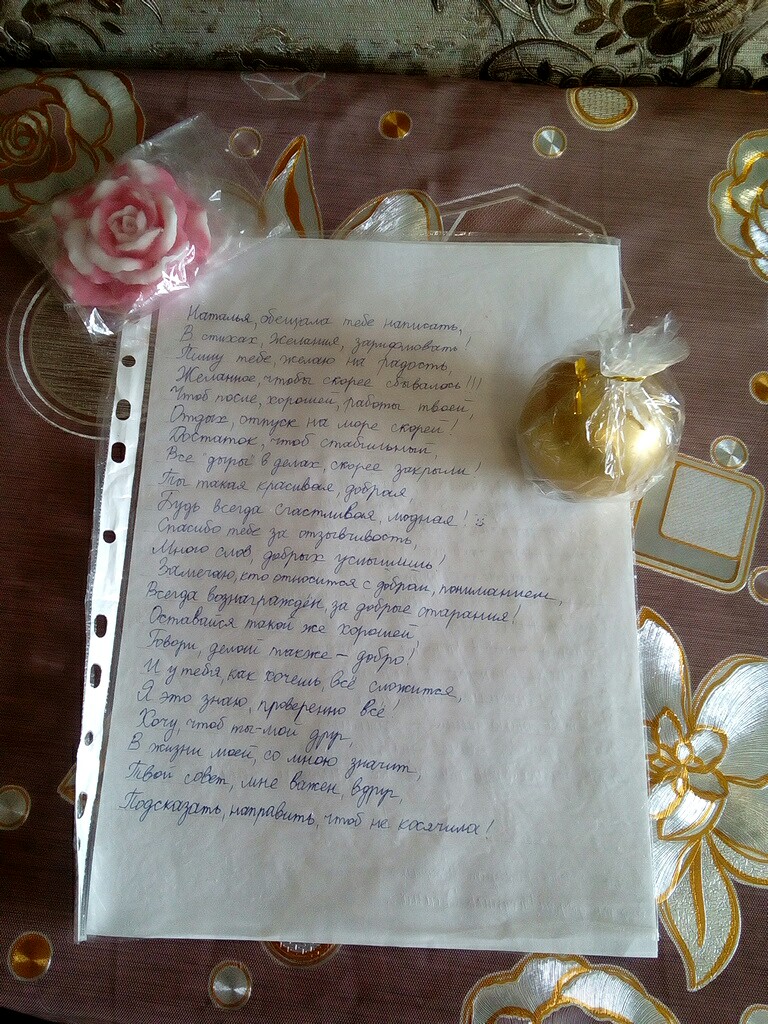 Наталья, обещала тебе написать,
В стихах, желания, зарифмовать!
Пишу тебе, желаю на радость,
Желанное, чтобы скорее сбывалось!!!
Чтоб после, хорошей, работы твоей,
Отдых, отпуск на море скорей!
Достаток, чтоб стабильный,
Все "дыры" в делах, скорее закрыли!
Ты такая красивая, добрая,
Будь всегда счастливая, модная!
Спасибо тебе за отзывчивость,
Много слов, добрых услышишь!
Замечаю, кто относится с добром, пониманием,
Всегда вознаграждён, за добрые старания!
Оставайся такой же хорошей
Говори, делай также – добро!
И у тебя, как хочешь, всё сложится,
Я это знаю, проверенно всё!
Хочу, чтоб ты – мой друг,
В жизни моей, со мною значит,
Твой совет, мне важен, вдруг,
Подсказать, направить, чтоб не косячила!